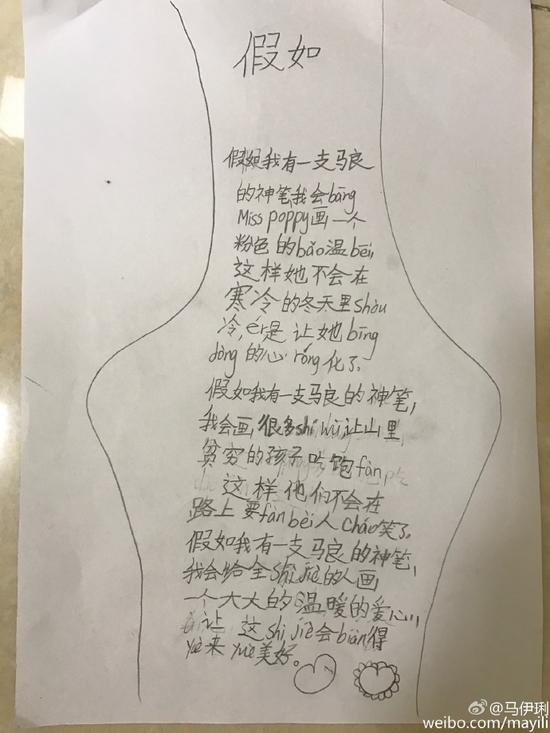 假如
假如我有一支马良
的神笔,我会bāng
Miss poppy画一个
粉色的bǎo温bēi,
这样她不会在
寒冷的冬天里shòu
冷,ér是让她bīng
dòng的心róng化了。
假如我有一支马良的神笔,
我会画很多shí wù让山里
贫穷的孩子吃饱fàn
这样他们不会在
路上要fàn bèi人cháo笑了。
假如我有一支马良的神笔,
我会给全shì jiè的人画
一个大大的温暖的爱心,
让这shì jiè会biàn得
yuè来yuè美好。
@马伊琍
weibo.com/mayili